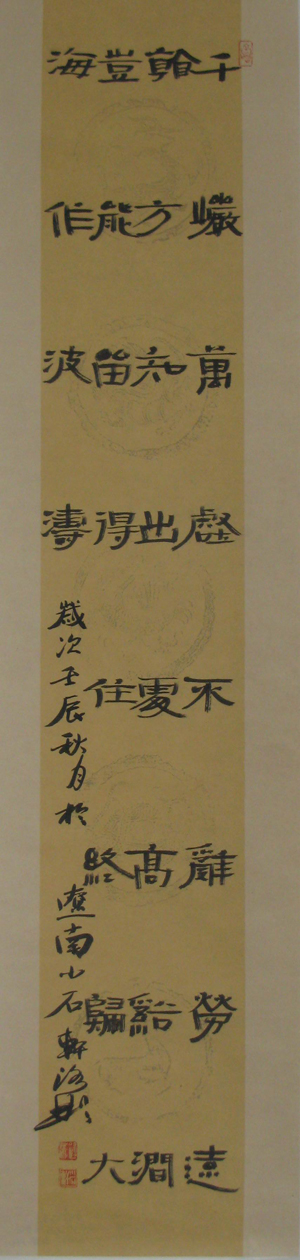 千巖萬壑不辭勞遠
𩕄方知出處高谿澗
豈能留得住終歸大
海作波濤
歲次壬辰秋月於遼南小石軒